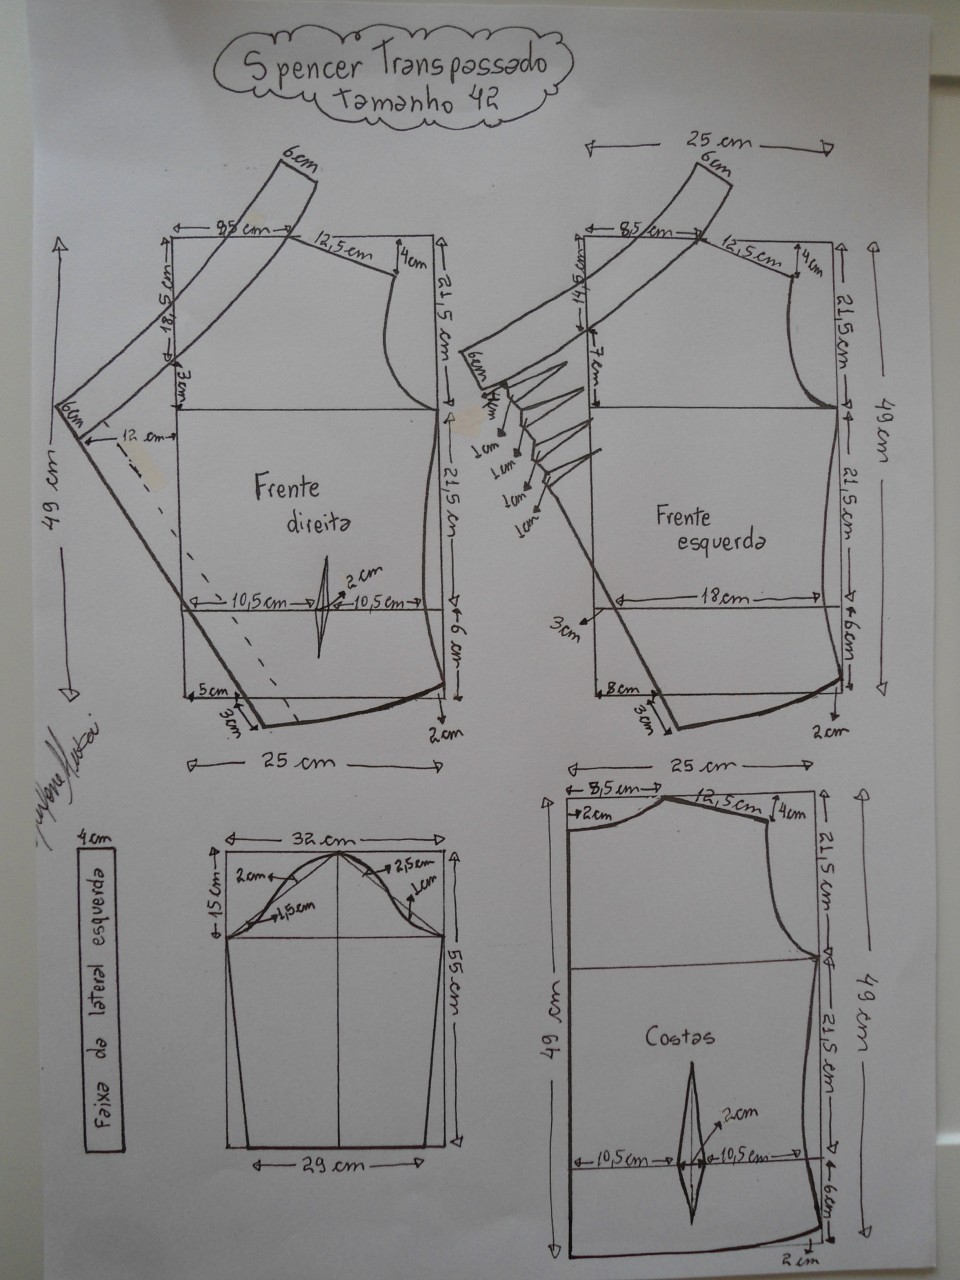 Spencer Transpassado
tamanho 42
6cm
8,5 cm
12,5cm
4cm
18,5cm
3cm
21,5 cm
6cm
12 cm
49 cm
Frente
direita
21,5 cm
10,5cm
2cm
10,5cm
6 cm
5cm
3cm
2cm
25 cm
25 cm
6cm
8,5cm
12,5cm
4cm
14,5cm
7cm
21,5cm
49 cm
6cm
4cm
1cm
1cm
1cm
1cm
Frente
esquerda
21,5cm
18cm
3cm
6cm
8cm
3cm
2cm
4cm
Faixa da lateral esquerda
32 cm
15cm
2cm
2,5cm
1,5cm
1cm
55 cm
29 cm
25 cm
8,5cm
12,5cm
4cm
2cm
21,5 cm
49 cm
49 cm
Costas
21,5cm
2cm
10,5cm
10,5cm
6cm
2 cm